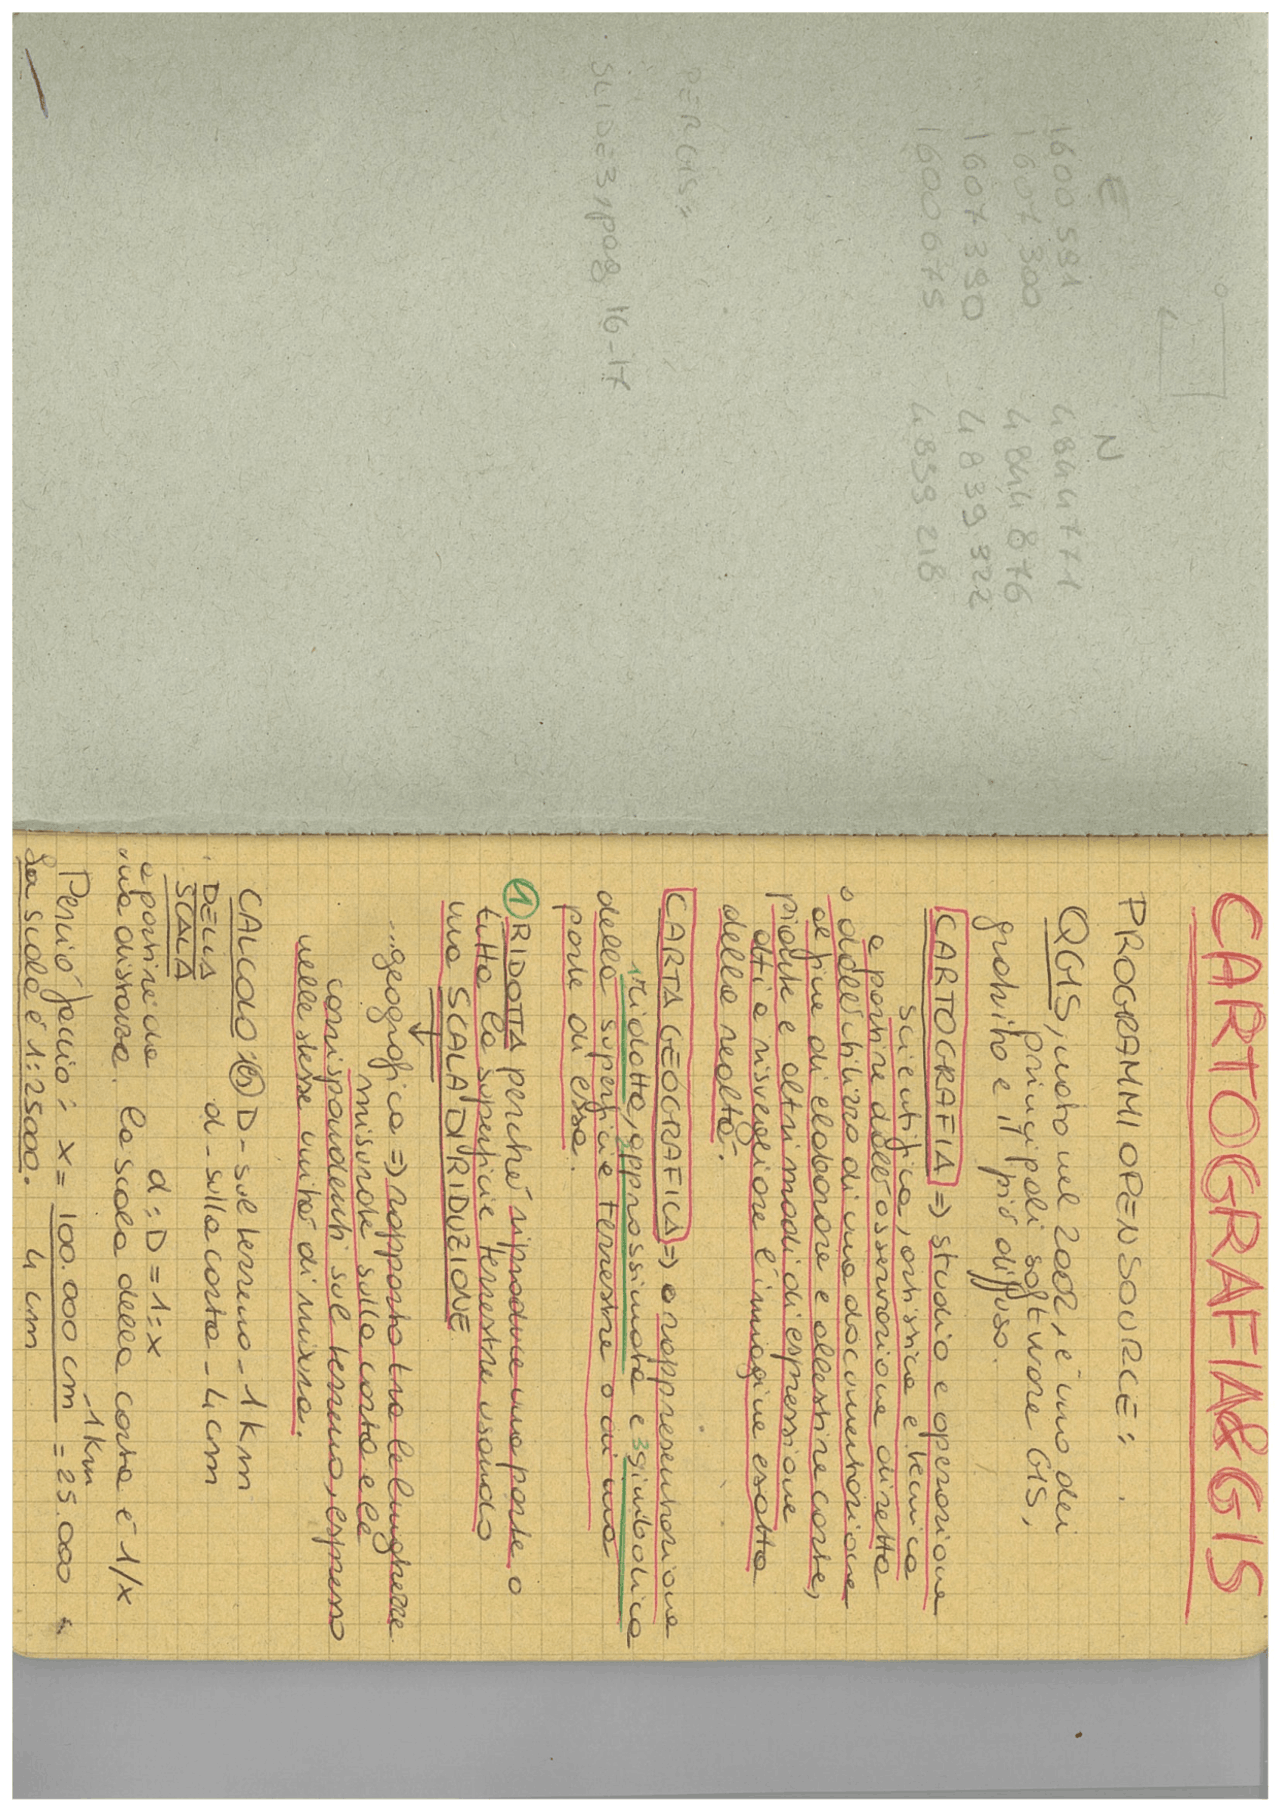 E N
1600 591 4844771
1607 300 4844 876
1607 390 4839 322
1600 675 4839 218
PER GIS =
SLIDE 3, pag 16-17
CARTOGRAFIA & GIS
PROGRAMMI OPENSOURCE:
QGIS, nato nel 2002, è uno dei
principali software GIS,
gratuito e il più diffuso.
CARTOGRAFIA => studio e operazione
scientifica, artistica e tecnica
a partire dall'osservazione diretta
o dall'utilizzo di una documentazione
al fine di elaborare e allestire carte,
piante e altri modi di espressione
atti a risvegliare l'imagine esatta
della realtà.
CARTA GEOGRAFICA => è rappresentazione
1 ridotta, 2 approssimata e 3 simbolica
della superficie terrestre o di una
parte di essa.
① RIDOTTA perché riproduce una parte o
tutta la superficie terrestre usando
una SCALA DI RIDUZIONE
...geografica => rapporto tra le lunghezze
misurate sulla carta e le
corrispondenti sul terreno, espresso
nelle stesse unità di misura.
CALCOLO D - sul terreno - 1 km
DELLA d - sulla carta - 4 cm
SCALA
a partire da d : D = 1 : x
una distanza. La scala della carta è 1/x
1 km
Perciò faccio: x = 100.000 cm = 25.000
La scala è 1:25000. 4 cm